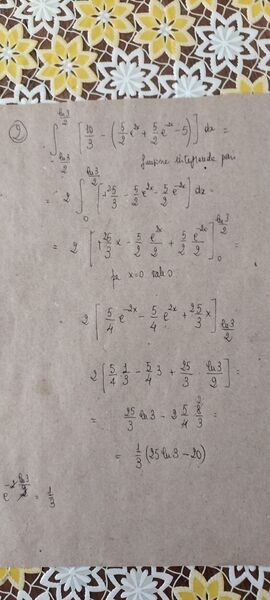 9
∫_{-ln3/2}^{ln3/2} [10/3 - (5/2 e^{2x} + 5/2 e^{-2x} - 5)] dx =
= 2 ∫_0^{ln3/2} [+25/3 - 5/2 e^{2x} - 5/2 e^{-2x}] dx =
= 2 [+25/3 x - 5/2 e^{2x}/2 + 5/2 e^{-2x}/2]_0^{ln3/2}
x=0
2 [5/4 e^{-2x} - 5/4 e^{2x} + 25/3 x]_{ln3/2}
2 [5/4 1/3 - 5/4 3 + 25/3 · ln3/2] =
= 25/3 ln3 - 2 5/4 8/3 =
= 1/3 (25 ln3 - 20)
e^{-2 ln3/2} = 1/3